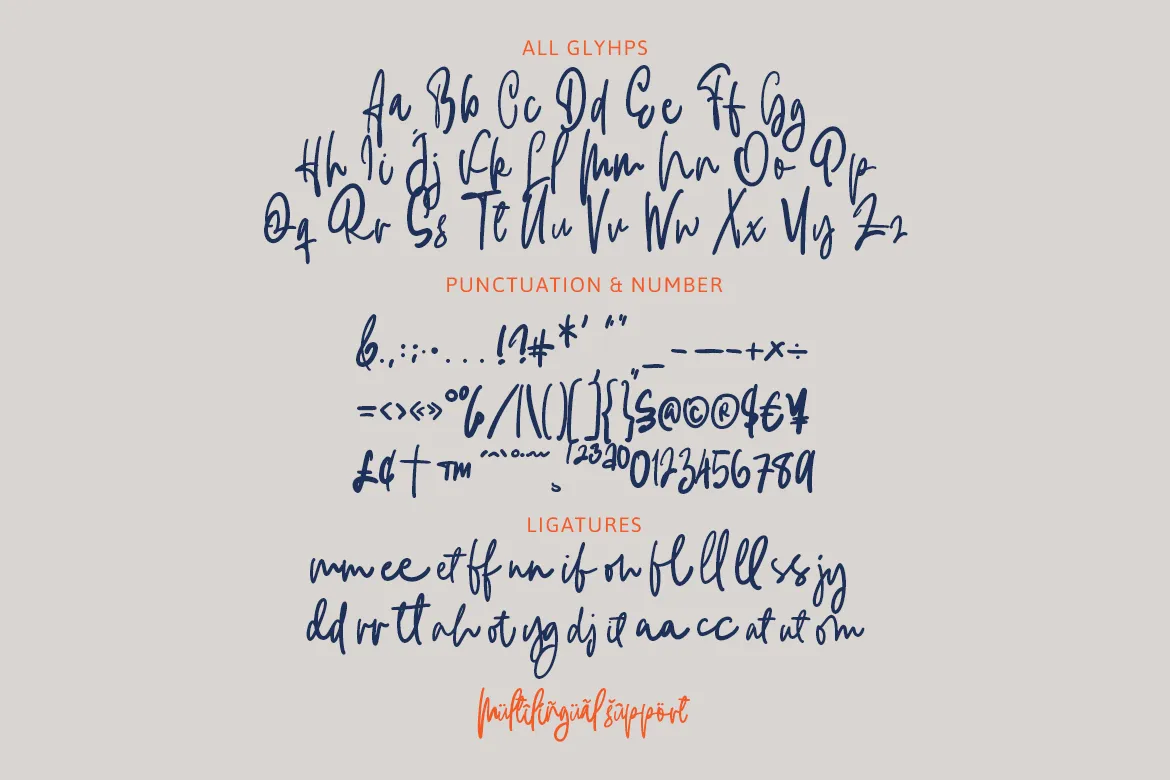 ALL GLYHPS
Aa Bb Cc Dd Ee Ff Gg
Hh Ii Jj Kk Ll Mm Nn Oo Pp
Qq Rr Ss Tt Uu Vv Ww Xx Yy Zz
PUNCTUATION & NUMBER
&.,:;·•...!?#*' “” 
"_-—–+×÷
=<>«»°%/|\()[]{}§@©®$€¥
£¢†™ ´ˆ`°·~¸ ¹²³ªº0123456789
LIGATURES
mm ee et ff nn if on fl ll ll ss jy
dd rr tt ah ot yg dj it aa cc at ut om
Mültîlíñgüãl šûppört